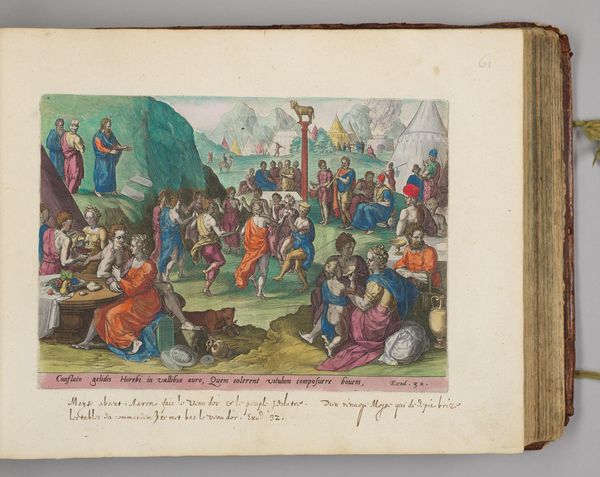 61
Conflato gelidis Horebi in vallibus auro, Quem colerent vitulum composuere bouem, Exod. 32.
Moyse absent. Aaron fait le veau dor & le peuple Idolatre. Dieu renuoye Moyse qui de depit brize
les tables du commandem. & met bas le veau dor. Exod 32.